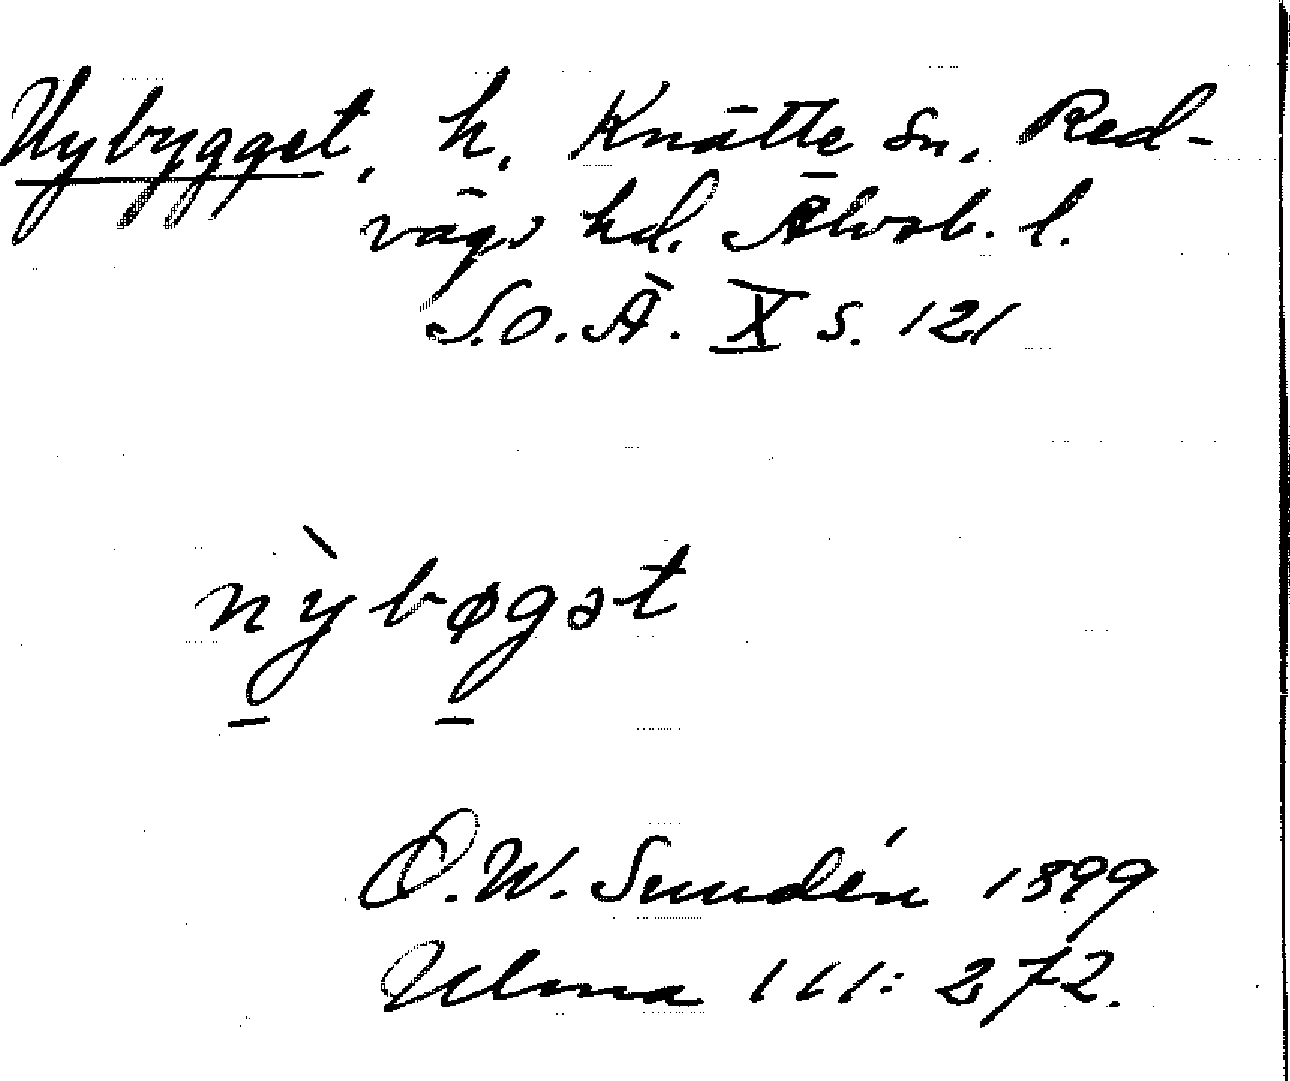 Nybygget, h. Knätte sn, Red-
vägs hd. Älvsb. l.
S.O.Ä. X s. 121
nỳbøgət
O.W. Sundén 1899
Ulma 111:272.